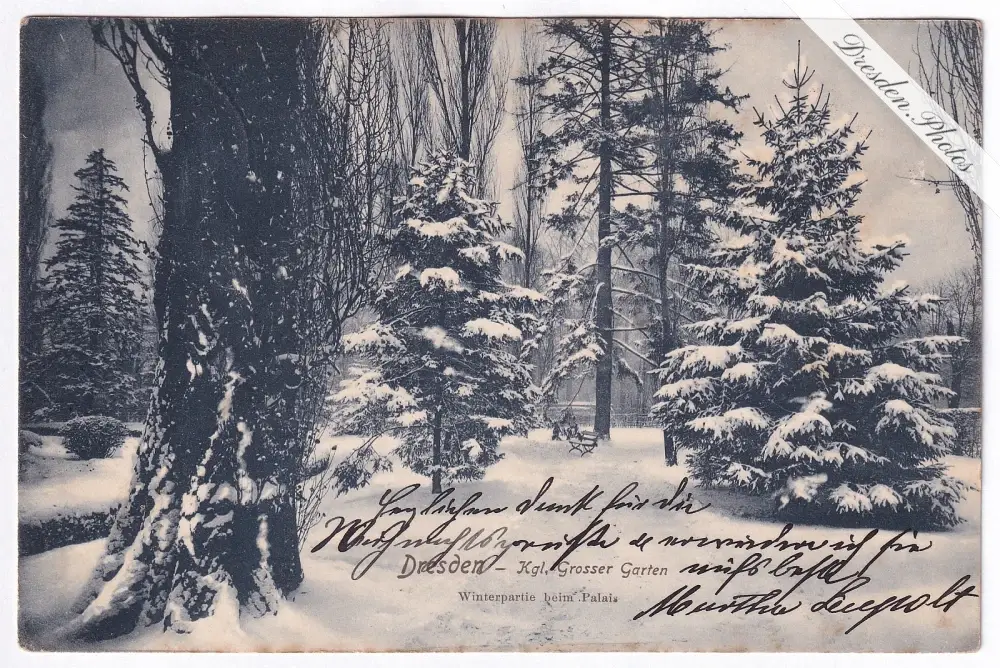 Dresden.Photos
Herzlichen Dank für die
Weihnachtsgrüße & erwiedere ich sie
Dresden – Kgl. Grosser Garten
aufs beste
Winterpartie beim Palais
Martha Leupolt